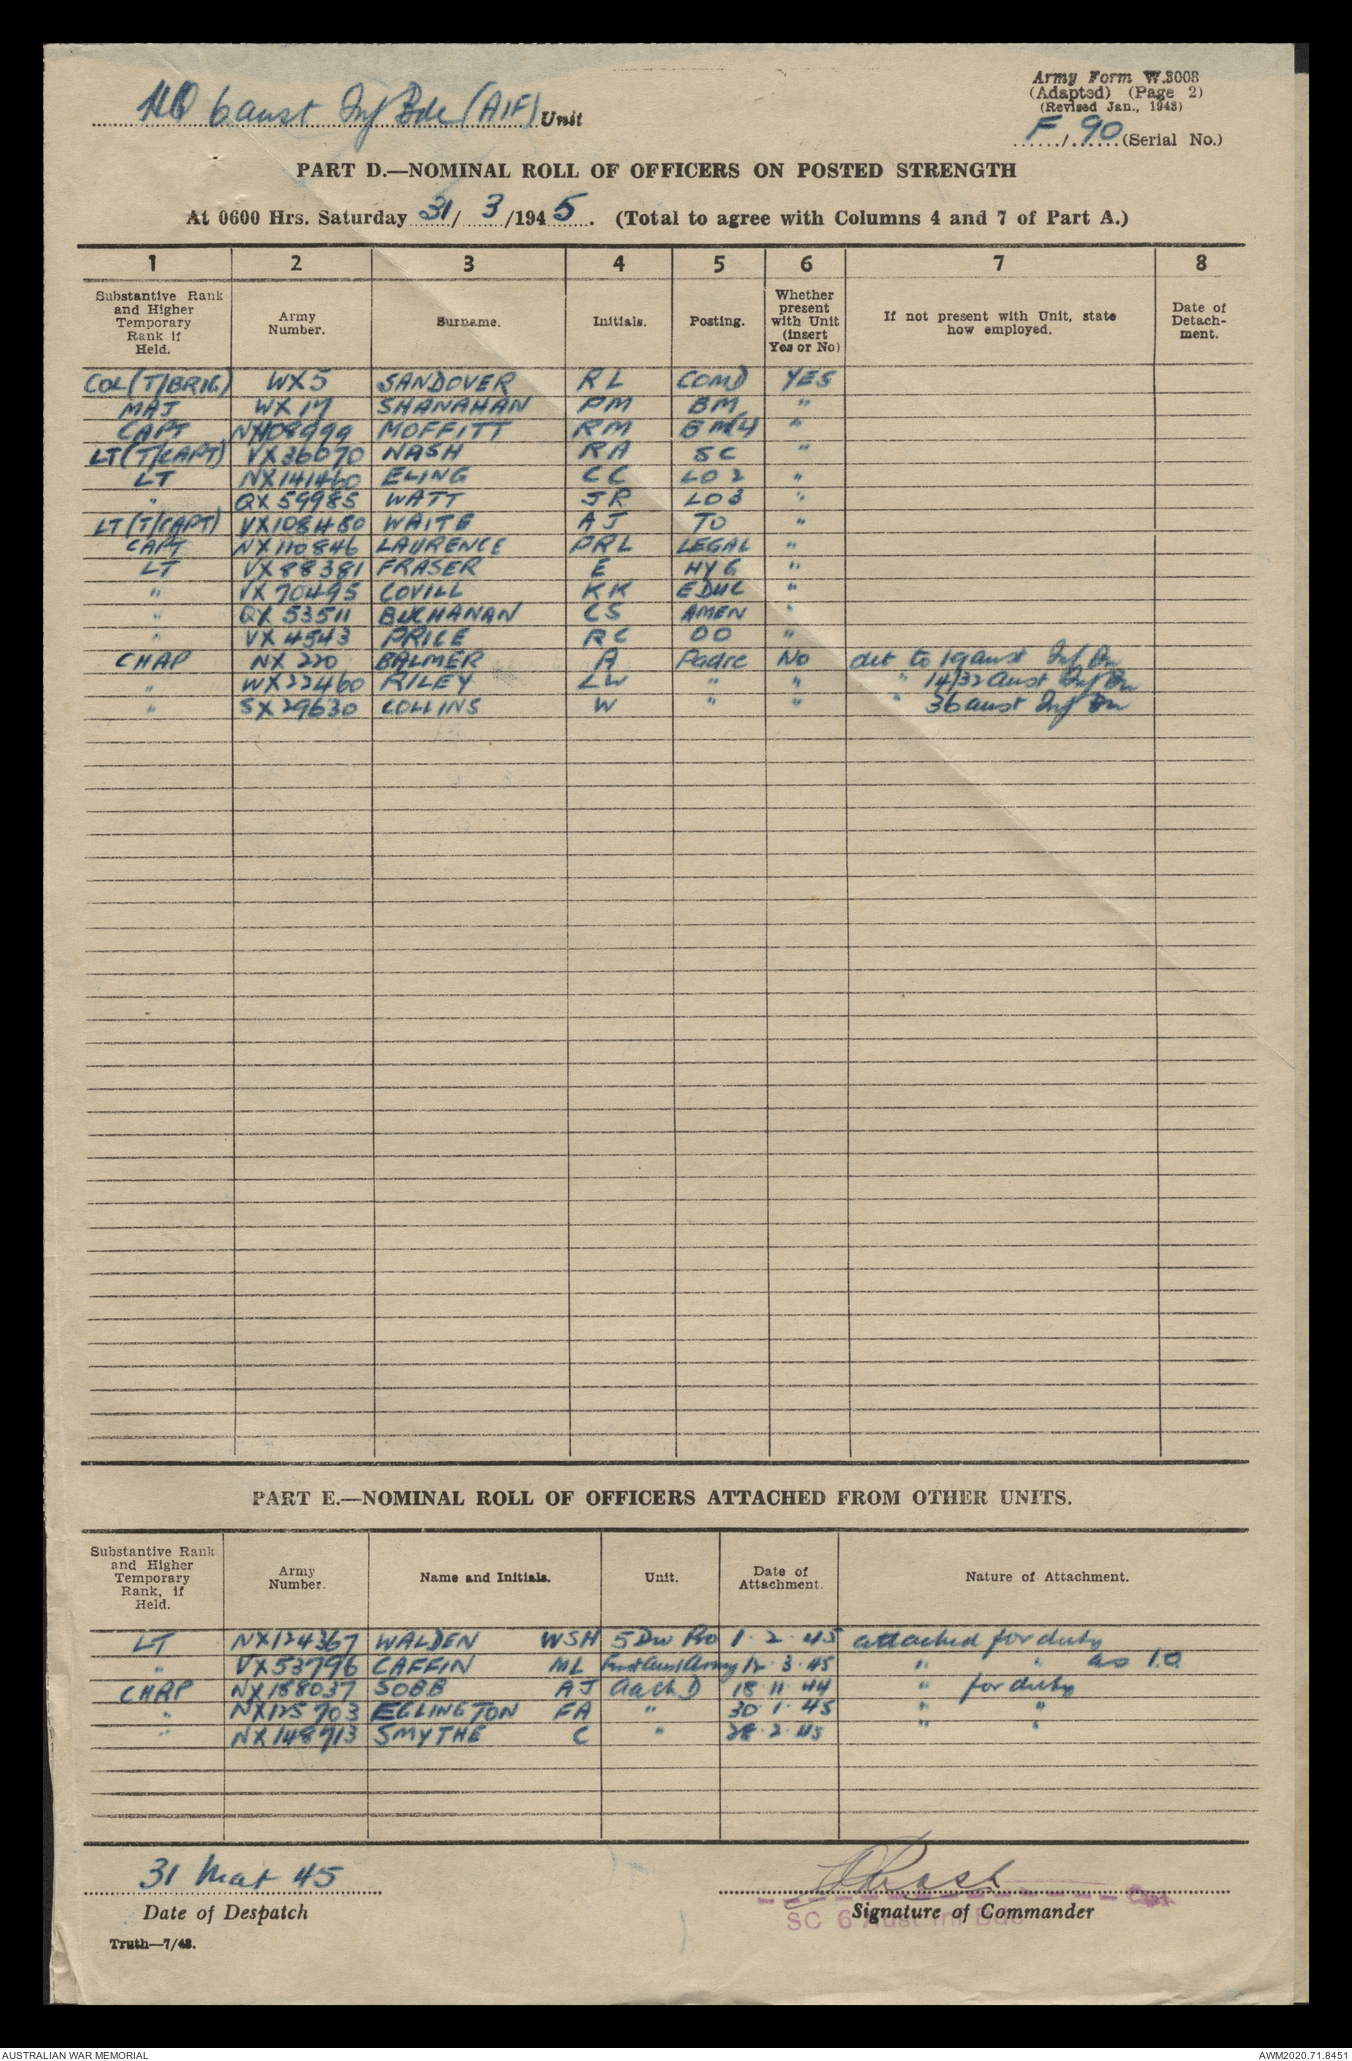 HQ 6 Aust Inf Bde (AIF) Unit
Army Form W.3008
(Adapted) (Page 2)
(Revised Jan., 1943)
F / 90 (Serial No.)
PART D.—NOMINAL ROLL OF OFFICERS ON POSTED STRENGTH
At 0600 Hrs. Saturday 31/ 3 /1945. (Total to agree with Columns 4 and 7 of Part A.)
1 2 3 4 5 6 7 8
Substantive Rank and Higher Temporary Rank if Held. Army Number. Surname. Initials. Posting. Whether present with Unit (insert Yes or No) If not present with Unit, state how employed. Date of Detach-ment.
COL (T/BRIG) WX5 SANDOVER RL COMD YES
MAJ WX 17 SHANAHAN PM BM "
CAPT NX108999 MOFFITT RM "
LT (T/CAPT) VX36070 NASH RA SC "
LT NX141460 ELING CC LO 2 "
" QX 59985 WATT JR LO 3 "
LT (T/CAPT) VX108480 WAITE AJ TO "
CAPT NX110846 LAURENCE PRL LEGAL "
LT VX88381 FRASER E HYG "
" VX 70495 COVILL KK EDUC "
" QX 53511 BUCHANAN CS AMEN "
" VX 4543 PRICE RC OO "
CHAP NX 220 BALMER A Padre No det to 19 Aust Inf Bn
" WX22460 RILEY LW " " " 14/32 Aust Inf Bn
" SX 29630 COLLINS W " " " 36 Aust Inf Bn
PART E.—NOMINAL ROLL OF OFFICERS ATTACHED FROM OTHER UNITS.
Substantive Rank and Higher Temporary Rank, if Held. Army Number. Name and Initials. Unit. Date of Attachment. Nature of Attachment.
LT NX124367 WALDEN WSH 5 Div Pro 1·2·45 attached for duty
" VX53796 CAFFIN ML First Aust Army 12·3·45 " " as I.O.
CHAP NX188037 SOBB AJ AaChD 18·11·44 " for duty
" NX125703 EGLINGTON FA " 30·1·45 " "
" NX148713 SMYTHE C " 28·2·45 " "
31 Mar 45
Date of Despatch
RNash Capt
SC 6 Aust Inf Bde
Signature of Commander
Truth—7/43.
AUSTRALIAN WAR MEMORIAL
AWM2020.71.8451